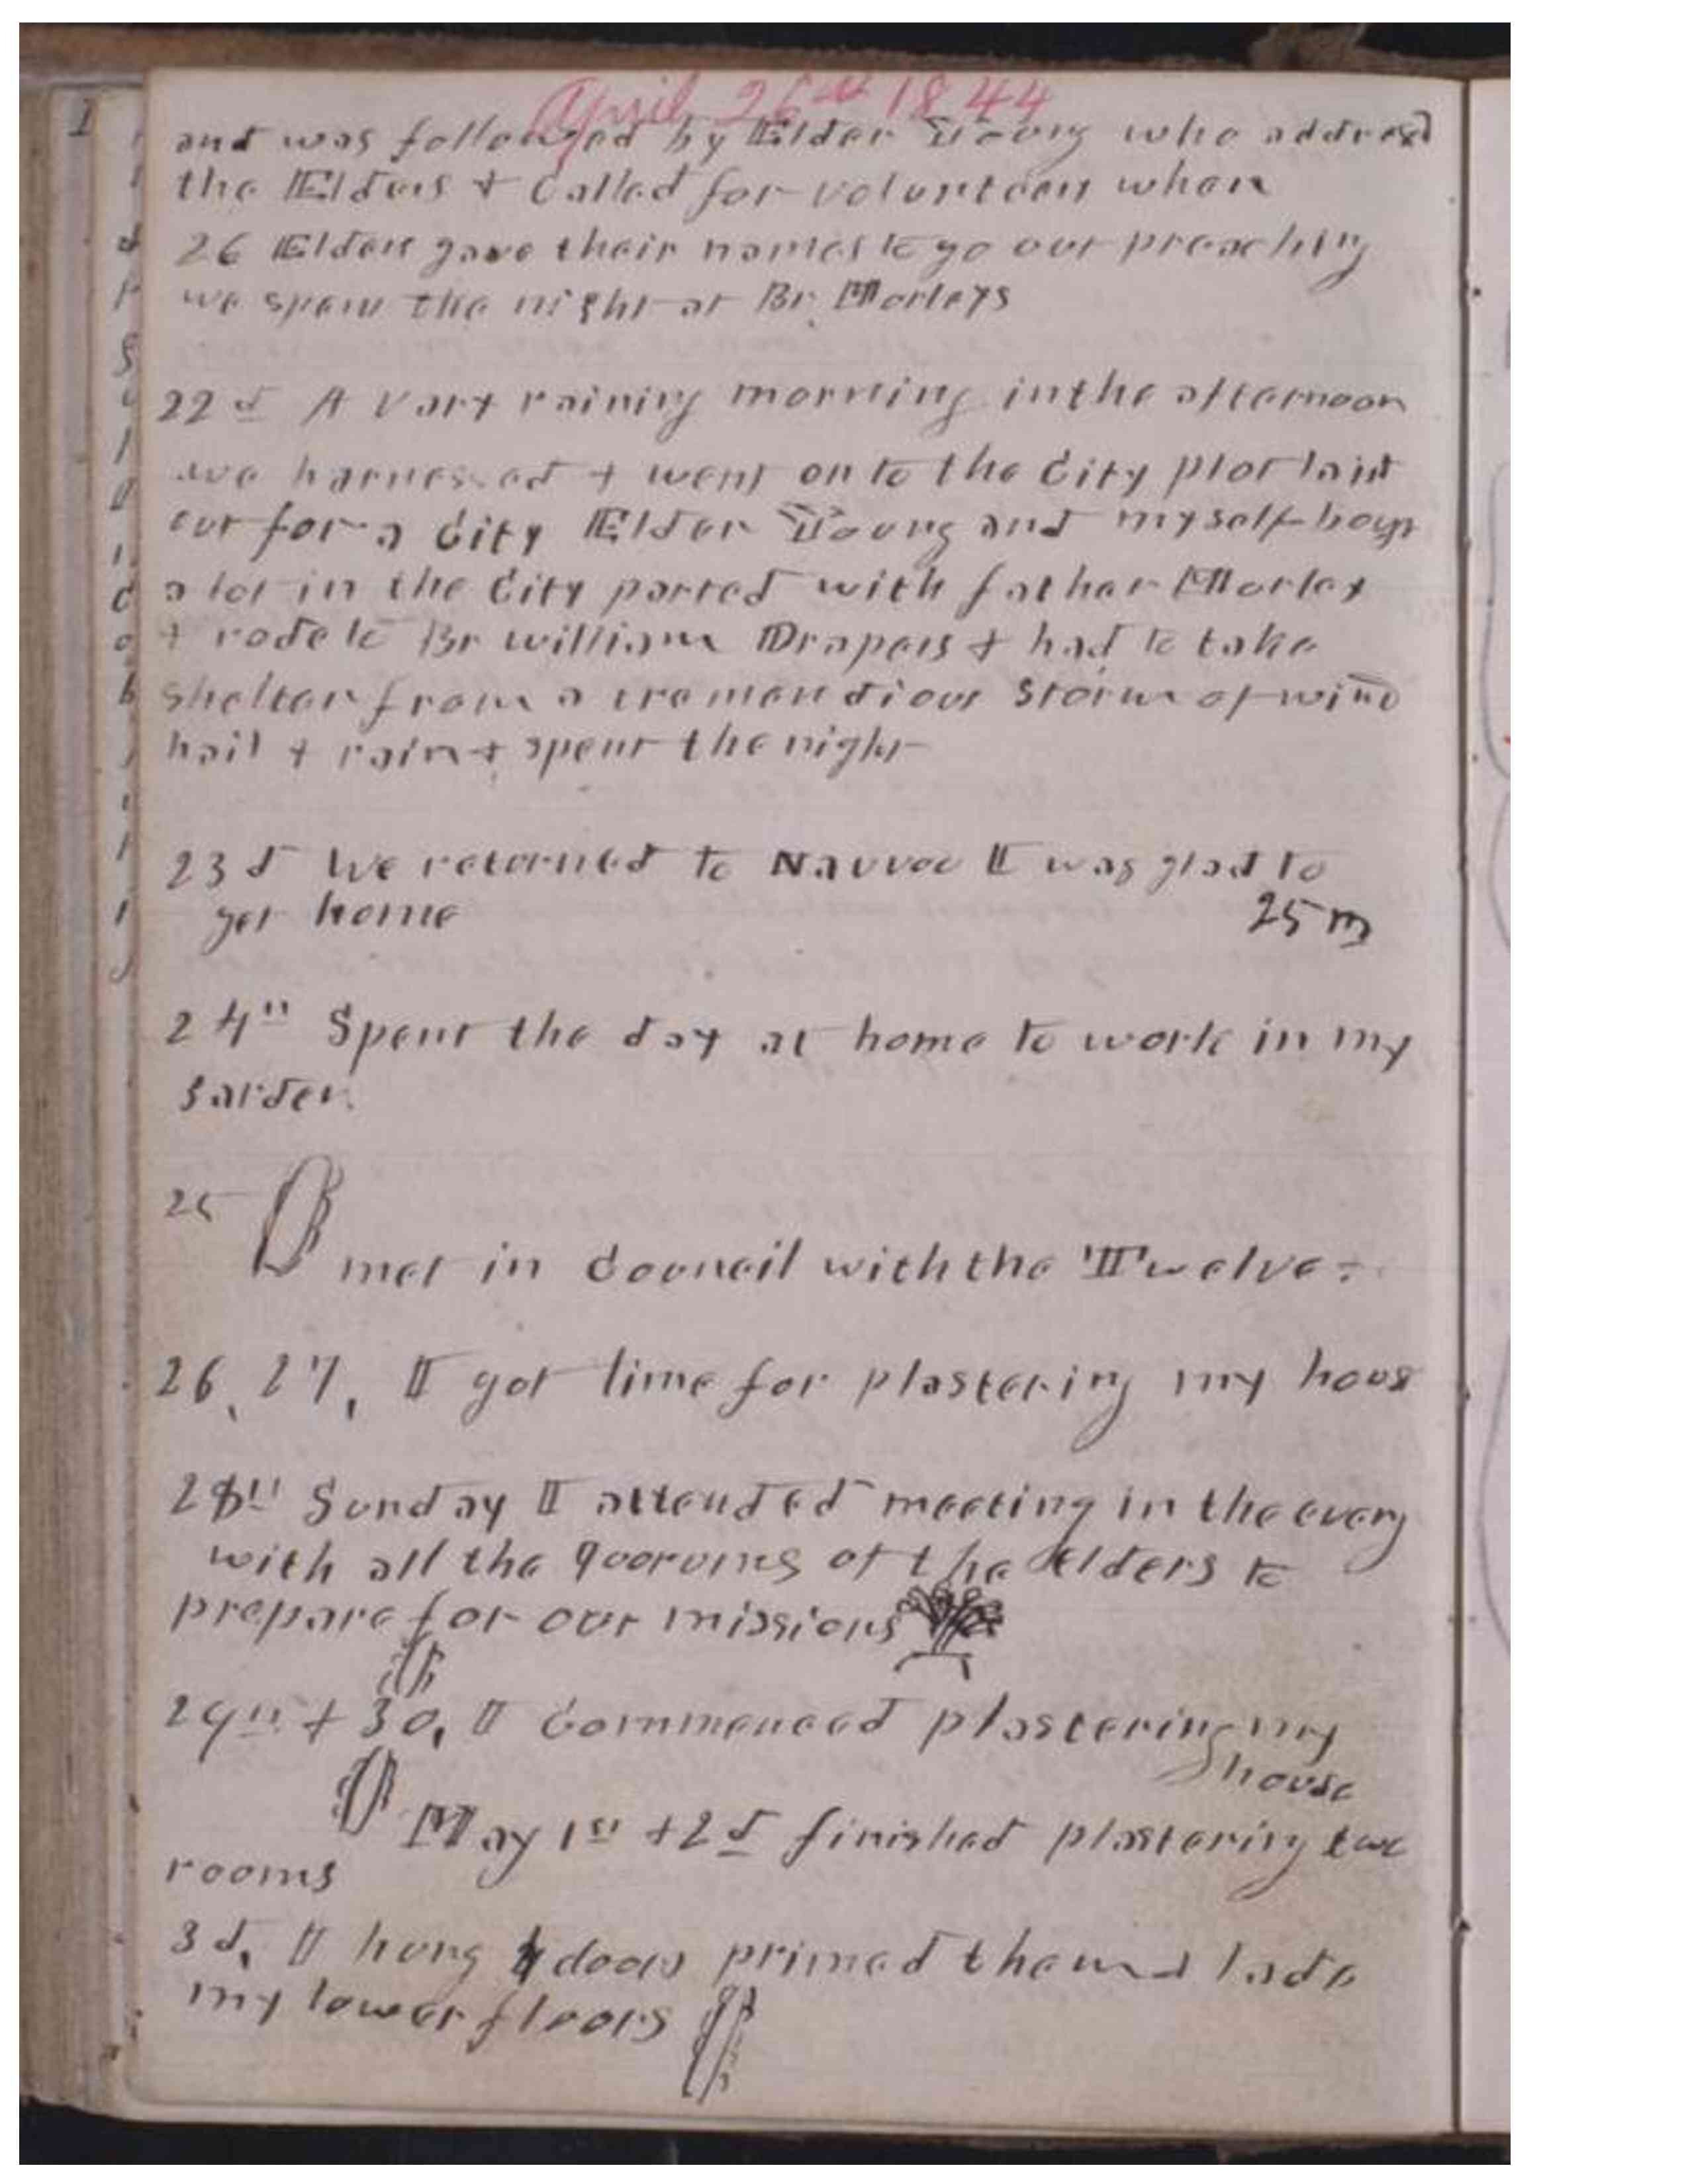 April 26th 1844
and was followed by Elder Young who addresed
the Elders & Called for volunteers when
26 Elders gave their names to go out preaching
we spent the night at Br Morleys
22d A vary rainiy morning in the afternoon
we harnessed & went on to the City plot laid
out for a City Elder Young and myself
a lot in the City parted with father Morley
& rode to Br william Drapers & had to take
shelter from a tremendious storm of wind
hail & rain & spent the night
23d We returned to Nauvoo I was glad to
get home 25 m
24th Spent the day at home to work in my
garden.
25
met in Council with the Twelve
26, 27, I got lime for plastering my hous
28th Sunday I attended meeting in the eveng
with all the quorums of the elders to
prepare for our missions
29th & 30, I Commenced plastering my
house
May 1st & 2d finished plastering two
rooms
3d, I hung 4 doors primed them & lade
my lower floors